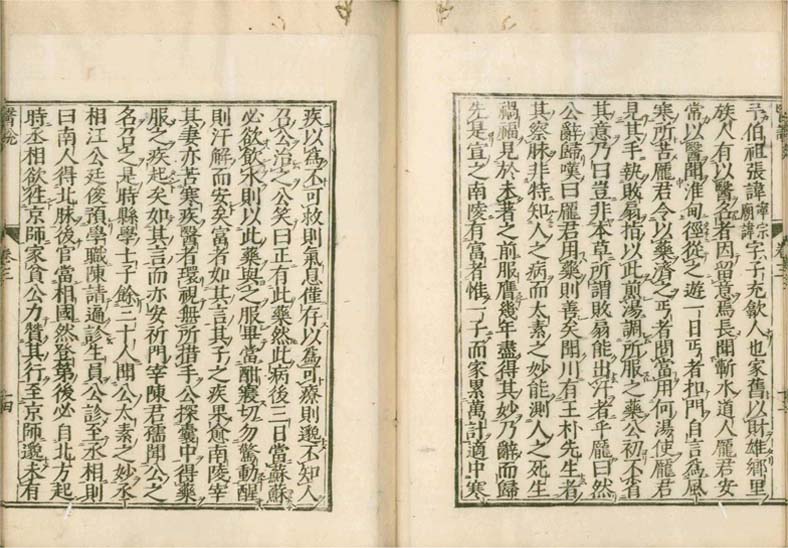 醫說
予伯祖張諱寧宗廟諱字子充歙人也家舊以財雄鄉里
族人有以醫名者因留意焉長聞蘄水道人龐君安
常以醫聞淮甸徑從之遊一日丐者扣門自言為風
寒所苦龐君令以藥濟之丐者問當用何湯使龐君
見其手執敗扇指以此煎湯調所服之藥公初不省
其意乃曰豈非本草所謂敗扇能出汗者乎龐曰然
公辭歸嘆曰龐君用藥則善矣聞川有王朴先生者
其察脉非特知人之病而太素之妙能測人之死生
禍福見於未著之前服膺幾年盡得其妙乃辭而歸
先是宣之南陵有富者惟一子而家累萬計適中寒
疾以為不可救則氣息僅存以為可療則邈不知人
召公治之公笑曰正有此藥然此病後三日當蘇蘇
必欲飲水則以此藥與之服畢當酣寢切勿驚動醒
則汗解而安矣富者如其言其子之疾果愈南陵宰
其妻亦苦寒疾醫者環視無所措手公探囊中得藥
服之疾起矣如其言而亦安祈門宰陳君孺聞公之
名召之是時縣學士子餘三十人聞公太素之妙丞
相江公廷俊預學職陳請遍診生員公診至丞相則
曰南人得北脉後官當相國然登第後必自北方起
時丞相欲往京師家貧公力贊其行至京師邈未有
醫說
卷三
十四